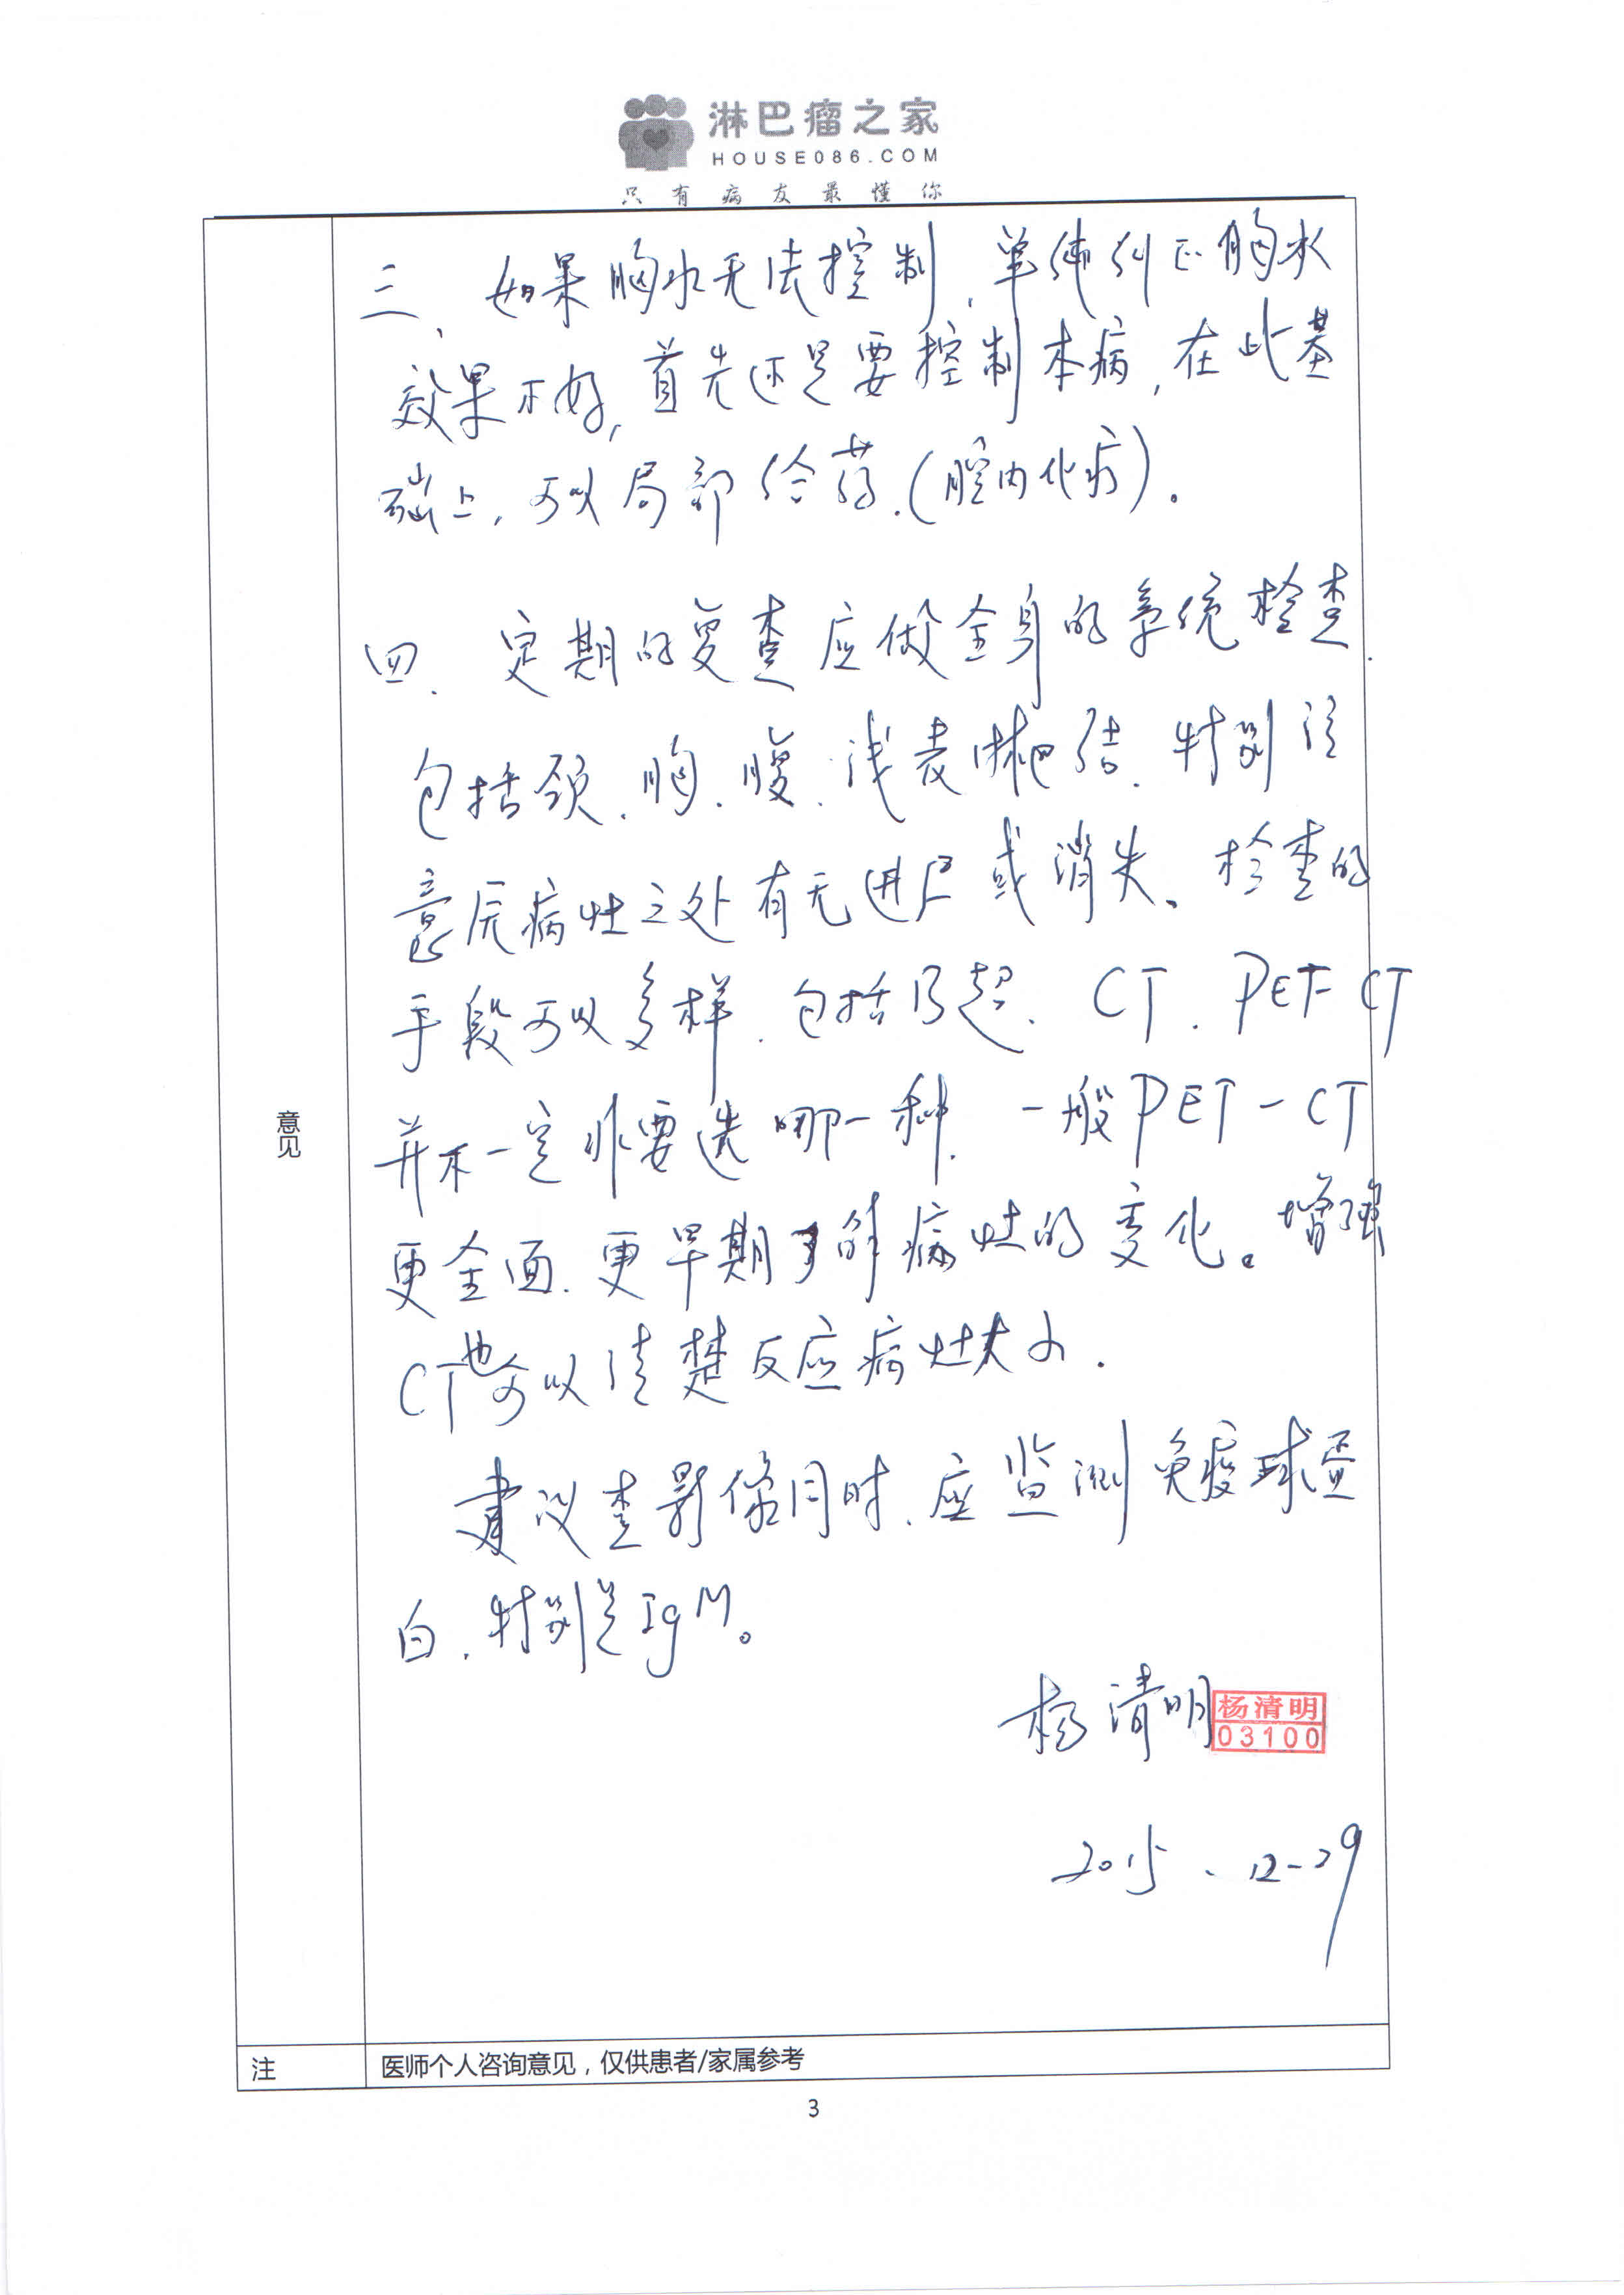 淋巴瘤之家
HOUSE086.COM
只有病友最懂你
三、如果胸水无法控制，单纯纠正胸水
效果不好，首先还是要控制本病，在此基
础上，可以局部给药.(腔内化疗)。
四、定期的复查应做全身的系统检查.
包括颈、胸、腹、浅表淋巴结.特别注
意原病灶之处有无进展或消失。检查的
手段可以多样.包括B超、CT、PET-CT
并不一定非要选哪一种.一般PET-CT
更全面.更早期了解病灶的变化。增强
CT也可以清楚反应病灶大小.
建议查影像同时.应监测免疫球蛋
白.特别是IgM。
杨清明
杨清明
03100
2015.12-29
意见
注
医师个人咨询意见，仅供患者/家属参考
3